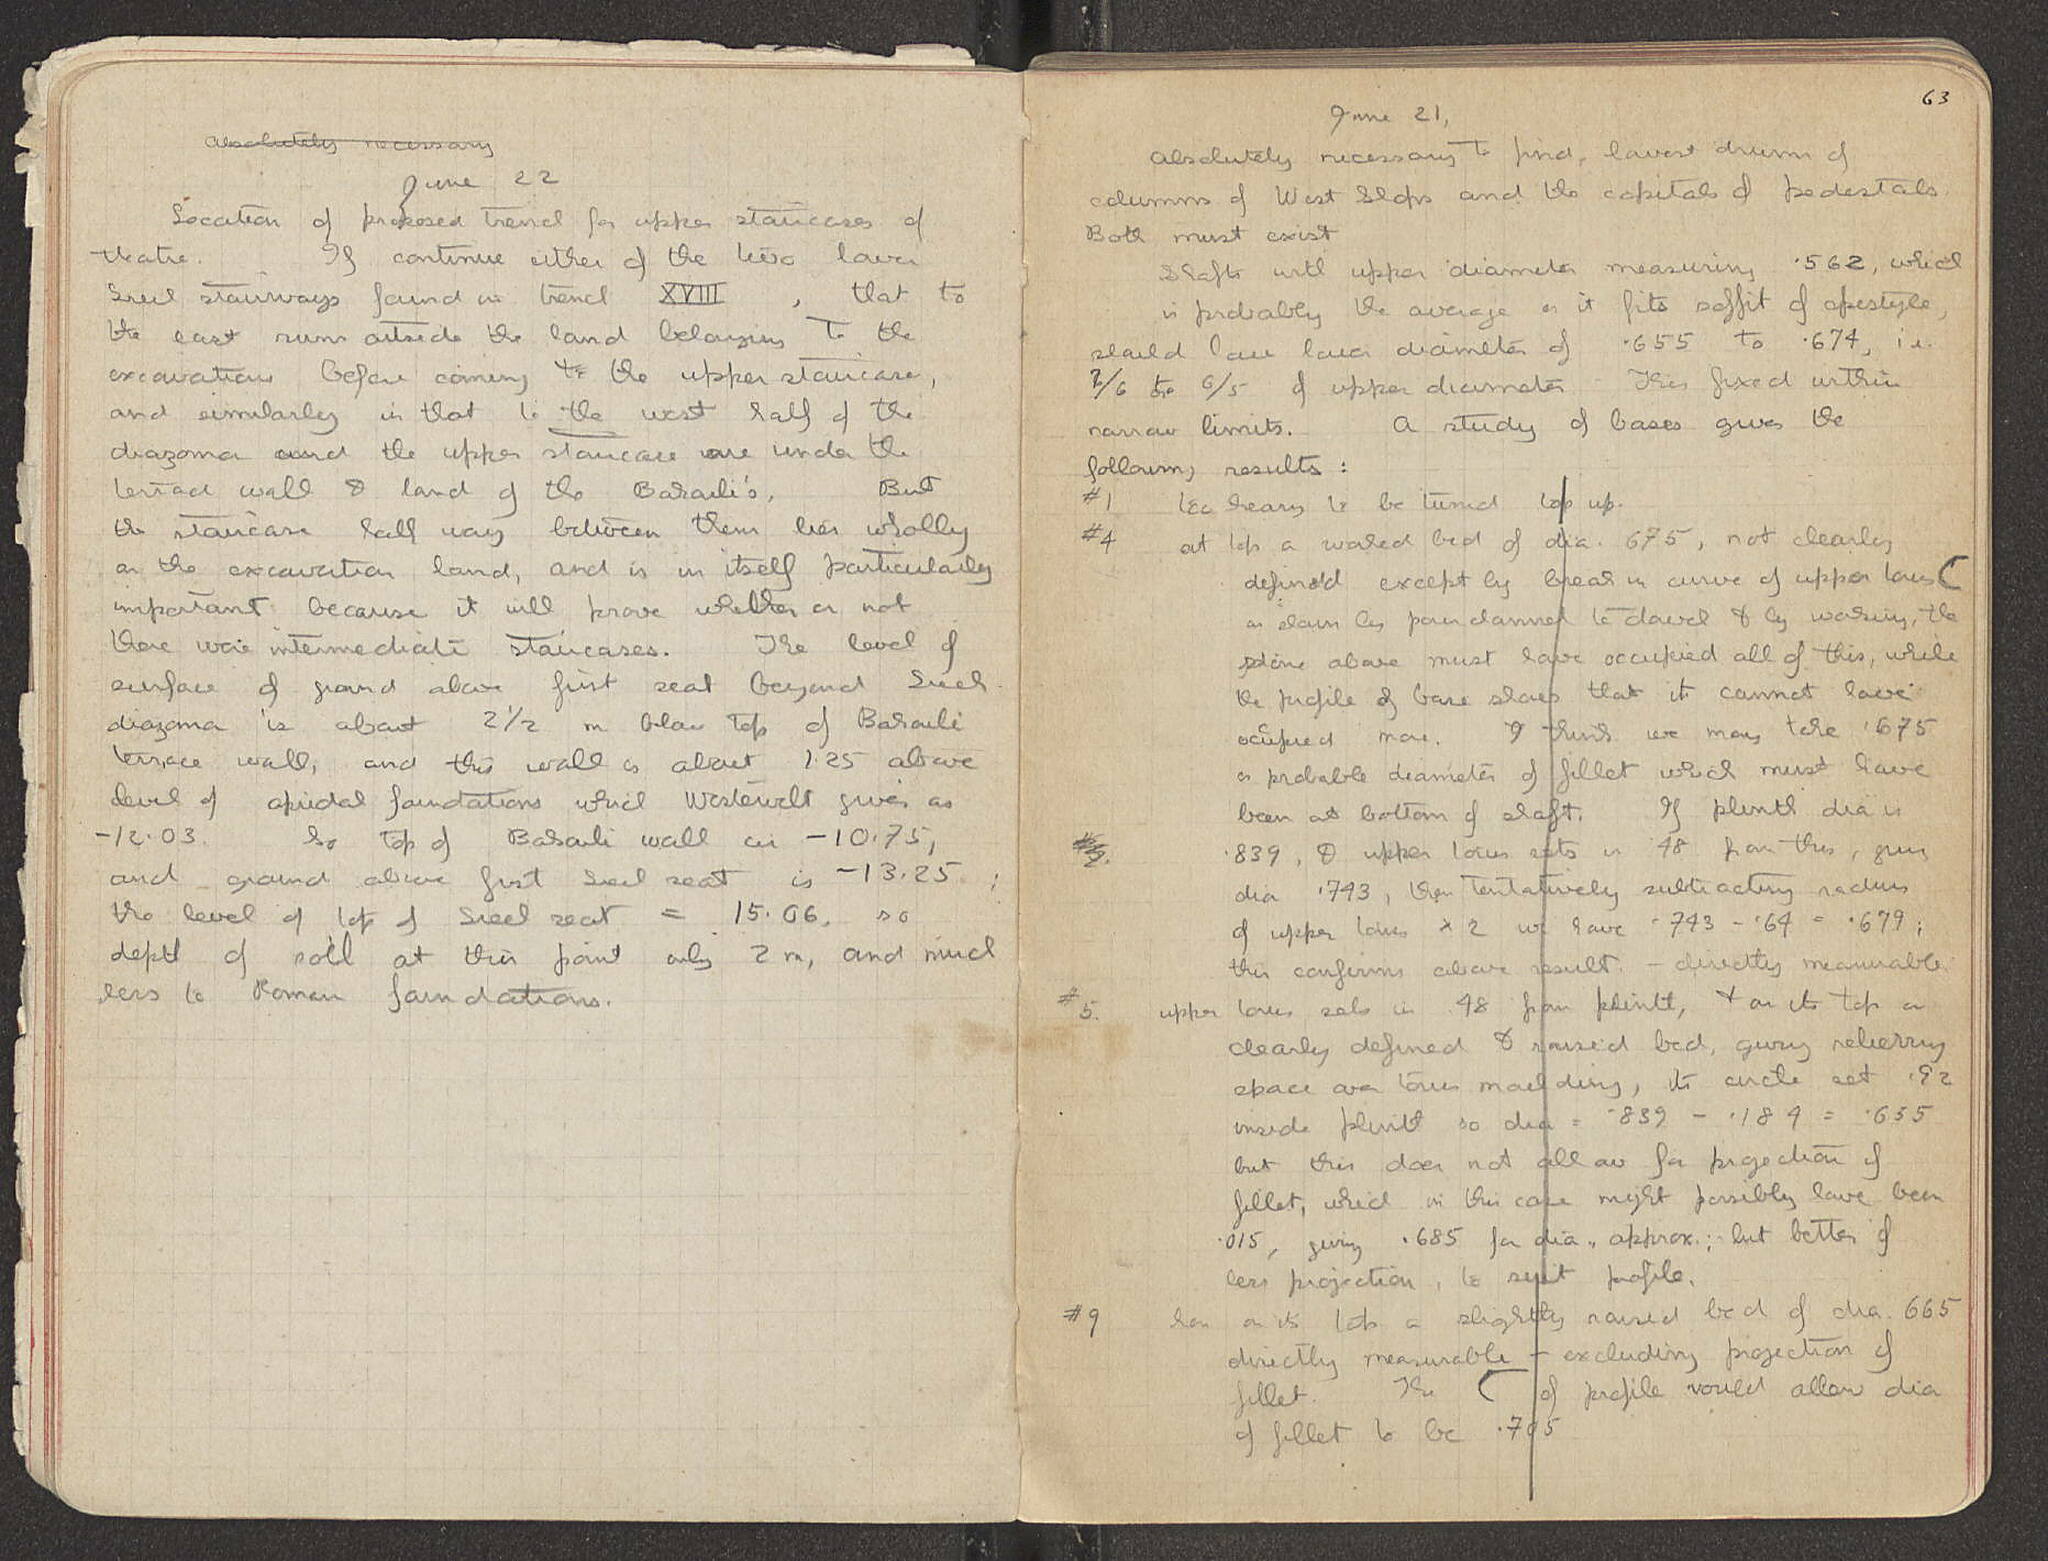 Absolutely necessary
June 22
Location of proposed trench for upper staircases of
theatre. If continue either of the two lower
Greek stairways found in trench XVIII, that to
the east runs outside the land belonging to the
excavations before coming to the upper staircase,
and similarly in that to the west half of the
diazoma and the upper staircase are under the
terrace wall & land of the Barseli's. But
the staircase half way between them lies wholly
on the excavation land, and is in itself particularly
important because it will prove whether or not
there were intermediate staircases. The level of
surface of ground above first seat beyond Greek
diazoma is about 2 1/2 m below top of
terrace wall, and this wall is about 1.25 above
level of apsidal foundations which Westervelt gives as
-12.03. So top of wall is -10.75,
and ground above first Greek seat is -13.25;
the level of top of Greek seat = 15.06, so
depth of soil at this point only 2 m, and much
less to Roman foundations.
63
June 21,
Absolutely necessary to find, lowest drums of
columns of West Shops and the capitals of pedestals.
Both must exist
Shafts with upper diameter measuring .562, which
is probably the average as it fits soffit of epistyle,
should have lower diameter of .655 to .674, i.e.
7/6 to 6/5 of upper diameter. This fixed within
narrow limits. A study of bases gives the
following results:
#1 too heavy to be turned top up.
#4 at top a worked bed of dia. 675, not clearly
defined except by break in curve of upper torus
as shown by pour channel to dowel & by working, the
stone above must have occupied all of this, while
the profile of base shows that it cannot have
occupied more. I think we may take .675
as probable diameter of fillet which must have
been at bottom of shaft. If plinth dia is
.839, & upper torus sets in 48 from this, giving
dia .743, then tentatively subtracting radius
of upper torus x 2 we have .743 - .64 = .679;
this confirms above result. - directly measurable
#5. upper torus sets in .48 from plinth, & on its top a
clearly defined & raised bed, giving relieving
space over torus moulding, its circle set .92
inside plinth so dia = .839 - .184 = .655
but this does not allow for projection of
fillet, which in this case might possibly have been
.015, giving .685 for dia., approx.; but better if
less projection, to suit profile.
#9 has on its top a slightly raised bed of dia. 665
directly measurable - excluding projection of
fillet. The ( of profile would allow dia
of fillet to be .705